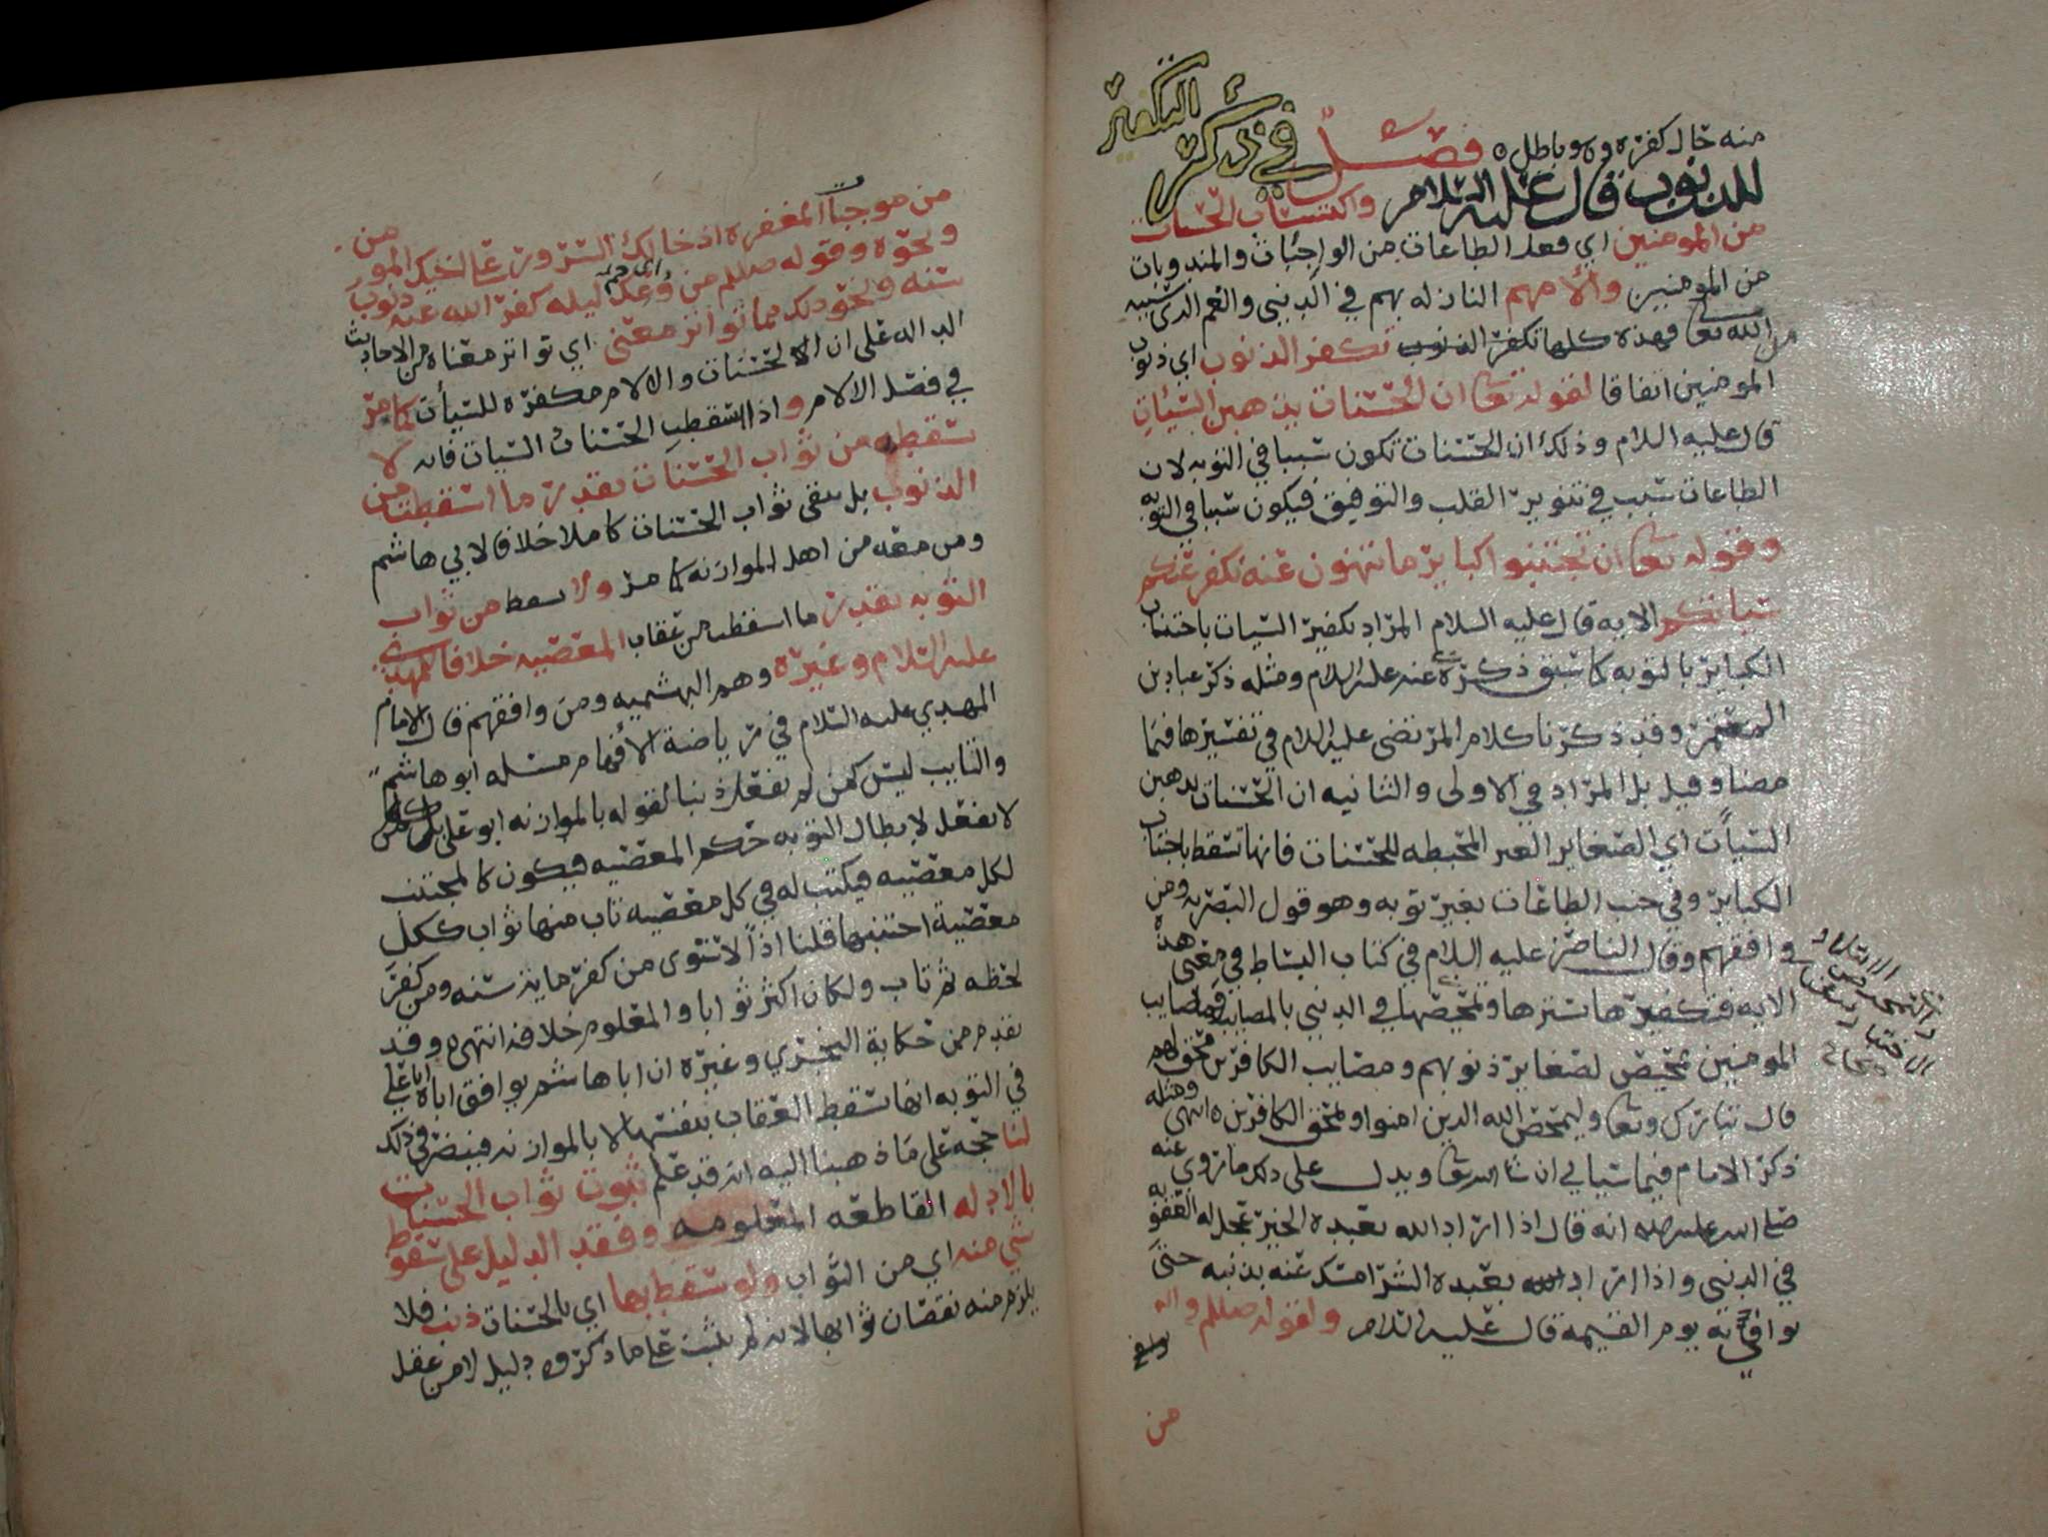 منه حال كفره وهو باطل ه فصل في ذكر التكفير
للذنوب قال عليه السلام واكتساب الحسنات
من المومنين اي فعل الطاعات من الواجبات والمندوبات
من المومنين والآمهم النازله بهم في الدنيى والغم الذي سببه
من الله تعالى فهذه كلها تكفر الذنوب تكفر الذنوب اي ذنوب
المومنين اتفاقا لقوله تعالى ان الحسنات يذهبن السيئات
قال عليه السلام وذلك ان الحسنات تكون سببا في التوبه لان
الطاعات سبب في تنوير القلب والتوفيق فيكون سببا في التوبه
وقوله تعالى ان تجتنبوا كباير ما تنهون عنه نكفر عنكم
سياتكم الايه قال عليه السلام المراد بكفير السيات باجتناب
الكباير بالتوبه كما سبق ذكره عنه عليه السلام ومثله ذكر عباد بن
المعتمر وقد ذكرنا كلام المرتضى عليه السلام في تفسيرها فيما
مضا وقيل بل المراد في الاولى والثانيه ان الحسنات يذهبن
السيآت اي الصغاير الغير المحبطه للحسنات فانها تسقط باجتناب
الكباير وفي جنب الطاعات بغير توبه وهو قول البصريه ومن
وافقهم وقال الناصر عليه السلام في كتاب البساط في معنى هذه
الايه فتكفيرها سترها وتمحيصها في الدنيى بالمصايب فمصايب
المومنين تمحيص لصغاير ذنوبهم ومصايب الكافرين محق لهم
قال تبارك وتعالى وليمحص الله الذين امنوا ويمحق الكافرين ه انتهى ومثله
ذكر الامام فيما سياتي ان شا الله تعالى ويدل على ذلك ما روي عنه
صلى الله عليه واله انه قال اذا اراد الله بعبده الخير عجل له العقوبه
في الدنيى واذا اراد الله بعبده الشر امسك عنه بذنبه حتى
يوافيه به يوم القيمه قال عليه السلام ولقوله صللم واله
من
من موجبات المغفره ادخالك السرور على اخيك المومن
ونحوه وقوله صللم من وعك ليله كفر الله عنه ذنوب
سنه ونحو ذلك مما تواتر معنى اي تواتر معناه من الاحاديث
الداله على ان الحسنات والالام مكفره للسيأت كما مر
في فصل الالام واذا اسقطت الحسنات السيات فانه لا
سقط من ثواب الحسنات بقدر ما اسقطت من
الذنوب بل يبقى ثواب الحسنات كاملا خلافا لابي هاشم
ومن معه من اهل الموازنه كما مر ولا يسقط من ثواب
التوبه بقدر ما اسقطت من عقاب المعصيه خلافا للمهدي
عليه السلام وغيره وهم البهشميه ومن وافقهم قال الامام
المهدي عليه السلام في رياضة الافهام مسله ابو هاشم
والتايب ليس كمن لم يفعل ذنبا لقوله بالموازنه ابو علي بل كمن
لا يفعل لابطال التوبه حكم المعصيه فيكون كالمجتنب
لكل معصيه فيكتب له في كل معصيه تاب منها ثواب ككل
معصية اجتنبها قلنا اذاً لاستوى من كفر ماية سنه ومن كفر
لحظه ثم تاب ولكان اكثر ثوابا والمعلوم خلافه انتهى ه وقد
تقدم من حكاية النجري وغيره ان ابا هاشم يوافق اباه ابا علي
في التوبه انها تسقط العقاب بنفسها لا بالموازنه فينظر في ذلك
لنا حجه على ما ذهبنا اليه انه قد علم ثبوت ثواب الحسنات
بالادله القاطعه المعلومه وفقد الدليل على سقوط
شي منه اي من الثواب ولو سقط بها اي بالحسنات ذنب فلا
يلزم منه نقصان ثوابها لانه لم يثبت على ما ذكروه دليل لا من عقل